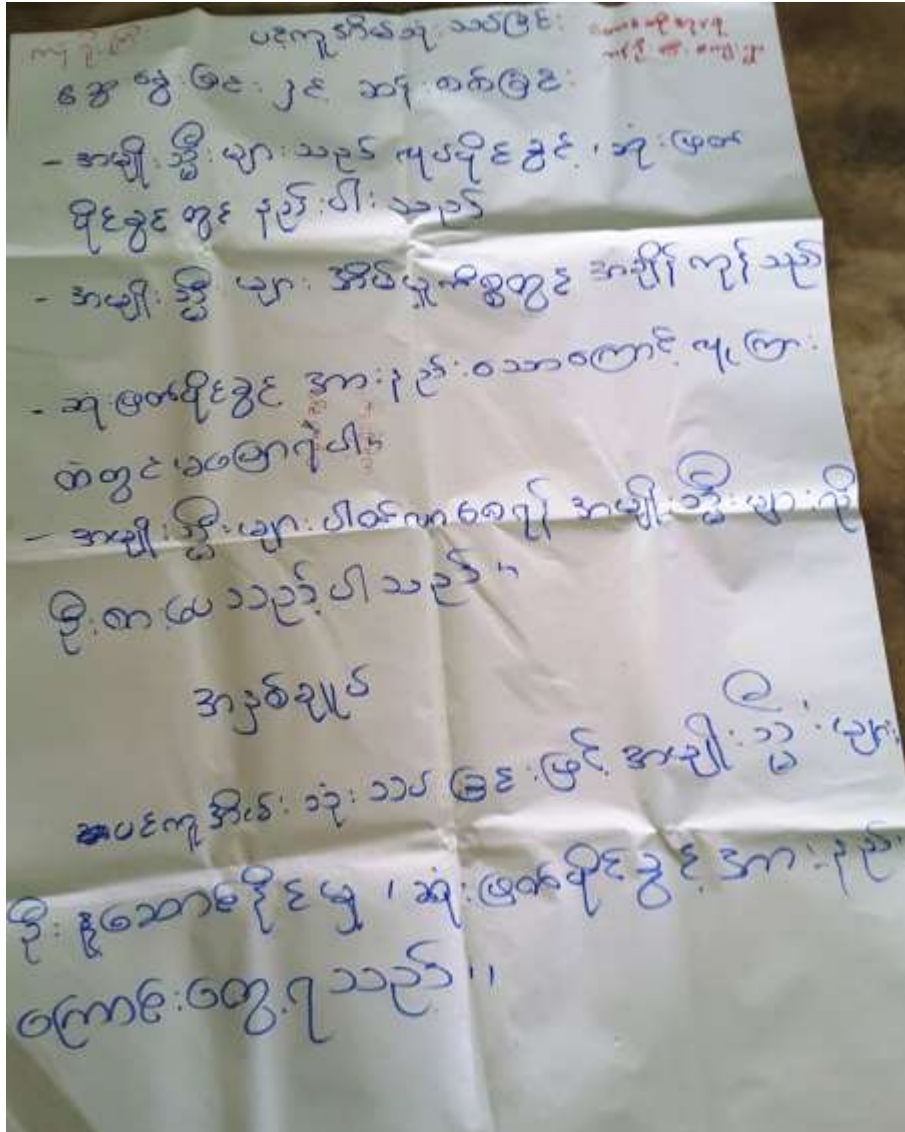 ပင့်ကူအိမ်သုံးသပ်ခြင်း
ဆွေးနွေးခြင်းနှင့် ဆန်းစစ်ခြင်း
- အမျိုးသ္မီးများသည် လုပ်ပိုင်ခွင့်၊ ဆုံးဖြတ်
ပိုင်ခွင့်တွင် နည်းပါးသည်
- အမျိုးသ္မီးများ အိမ်မှုကိစ္စတွင် အချိန်ကုန်သည်
- ဆုံးဖြတ်ပိုင်ခွင့် အားနည်းသောကြောင့် လူကြား
ထဲတွင် မပြောရဲပါ။
- အမျိုးသ္မီးများ ပါဝင်လာစေရန် အမျိုးသ္မီးများကို
ဦးစားပေးသည့်ပါသည်။
အနှစ်ချုပ်
ပင့်ကူအိမ်းသုံးသပ်ခြင်းဖြင့် အမျိုးသ္မီးများ
ဦးဆောင်နိုင်မှု၊ ဆုံးဖြတ်ပိုင်ခွင့် အားနည်း
ကြောင်းတွေ့ရသည်။